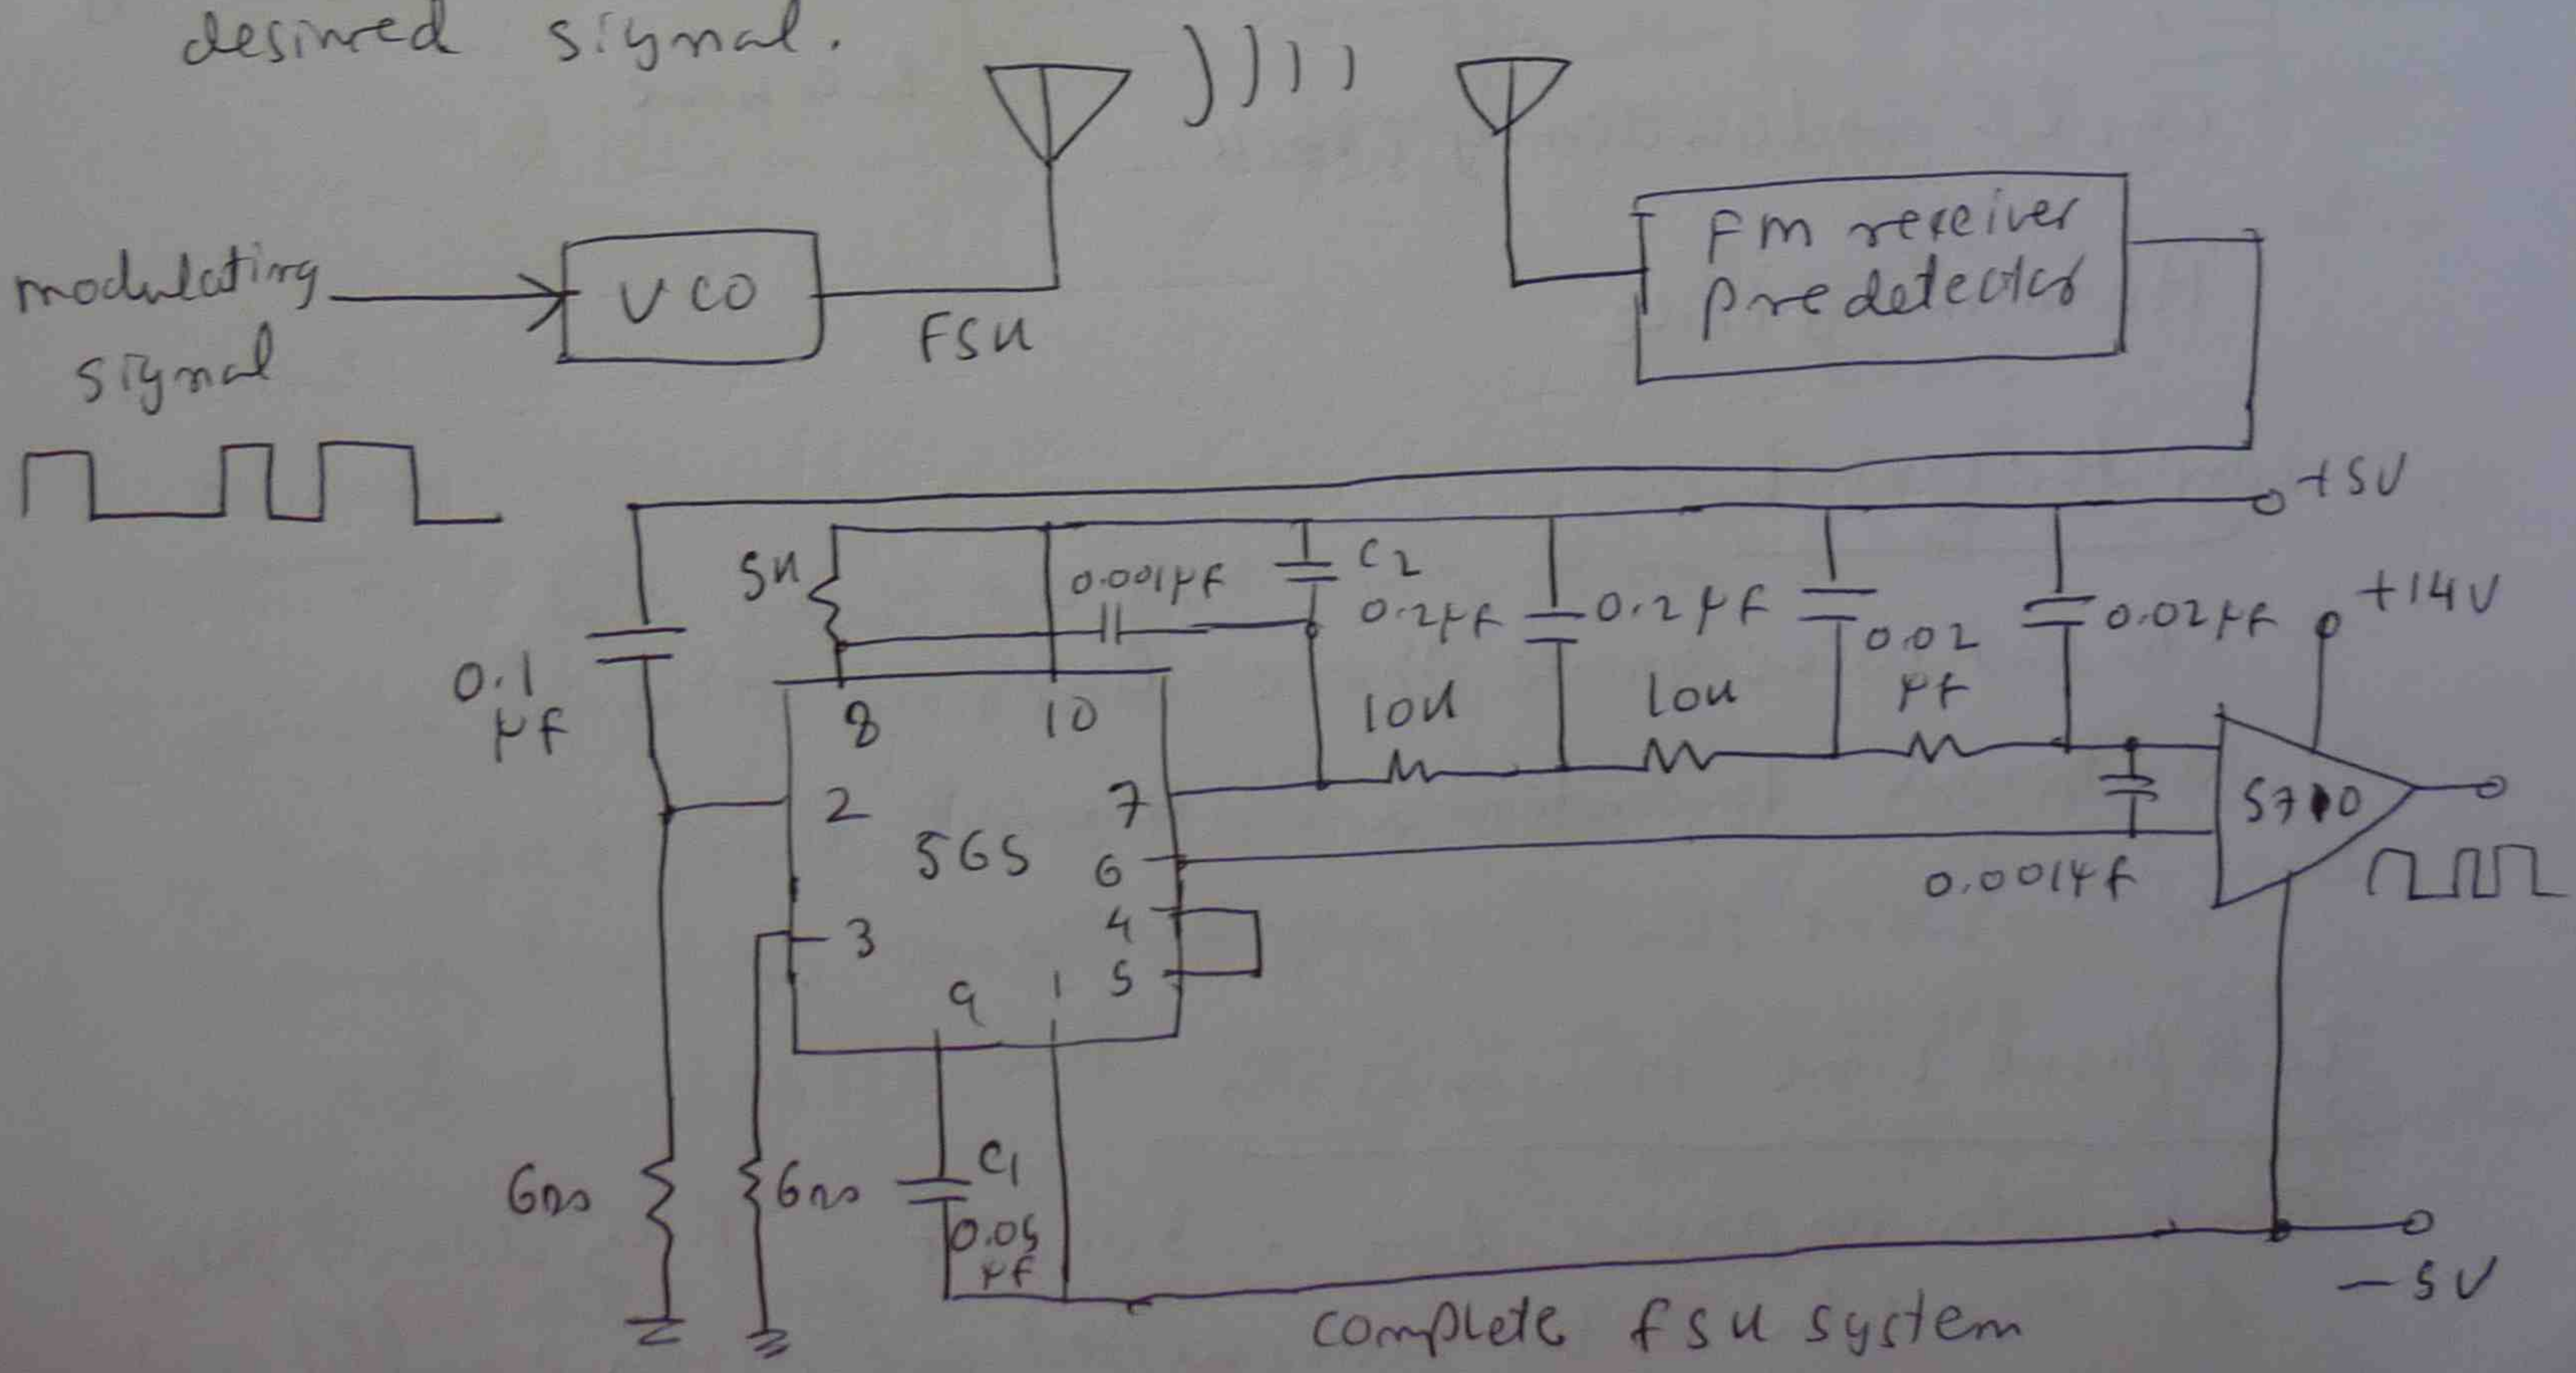 desired signal.
modulating
signal
VCO
FSK
FM receiver
predetector
+5V
5K
0.001μF
C2
0.2μF
0.2μF
0.02
μF
0.02μF
+14V
0.1
μF
8
10
10K
10K
2
7
565
6
5710
0.001μF
3
4
5
9
1
600
600
C1
0.05
μF
-5V
complete FSK system